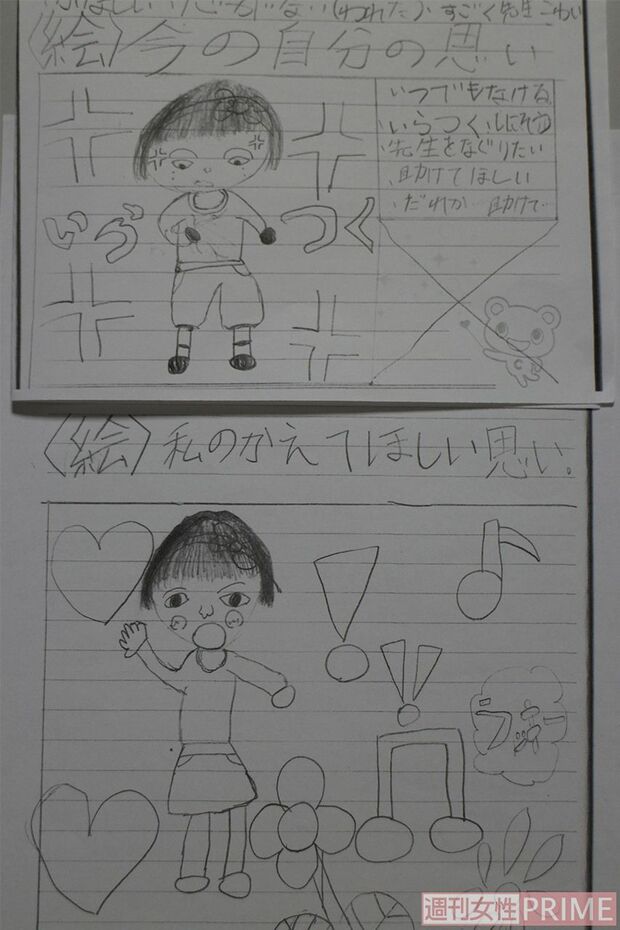 かほしい子どもじゃない(いわれた)、すごく先生こわい
〈絵〉今の自分の思い
いつでもなける。
いらつく、しにそう
先生をなぐりたい
助けてほしい
だれか 助けて
いら つく
〈絵〉私のかえてほしい思い。
ラッキー
週刊女性PRIME